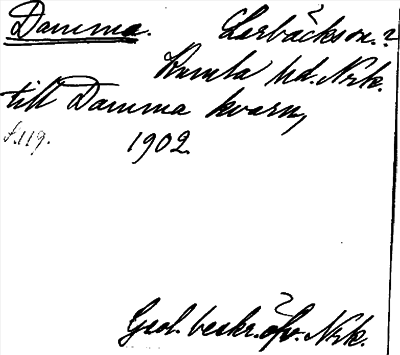 Damma. Lerbäckson.?
Kumla hd. Nrk.
till Damma kvarn,
f. 119. 1902.
Geol. beskr. öfv. Nrk.